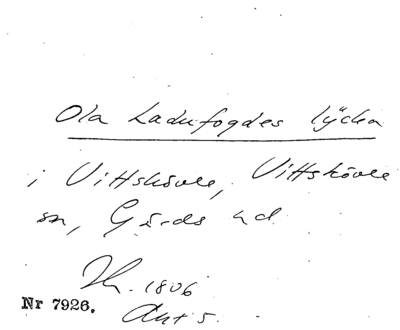 Ola Ladufogdes lycka
i Vittskövle, Vittskövle
sn, Gärds hd.
Hr. 1806
Akt 5.
Nr 7926.